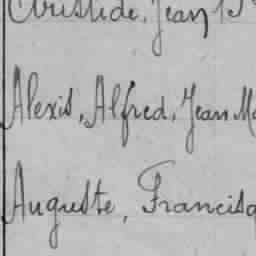 Aristide, Jean
Alexis, Alfred, Jean Ma
Auguste, Francisq